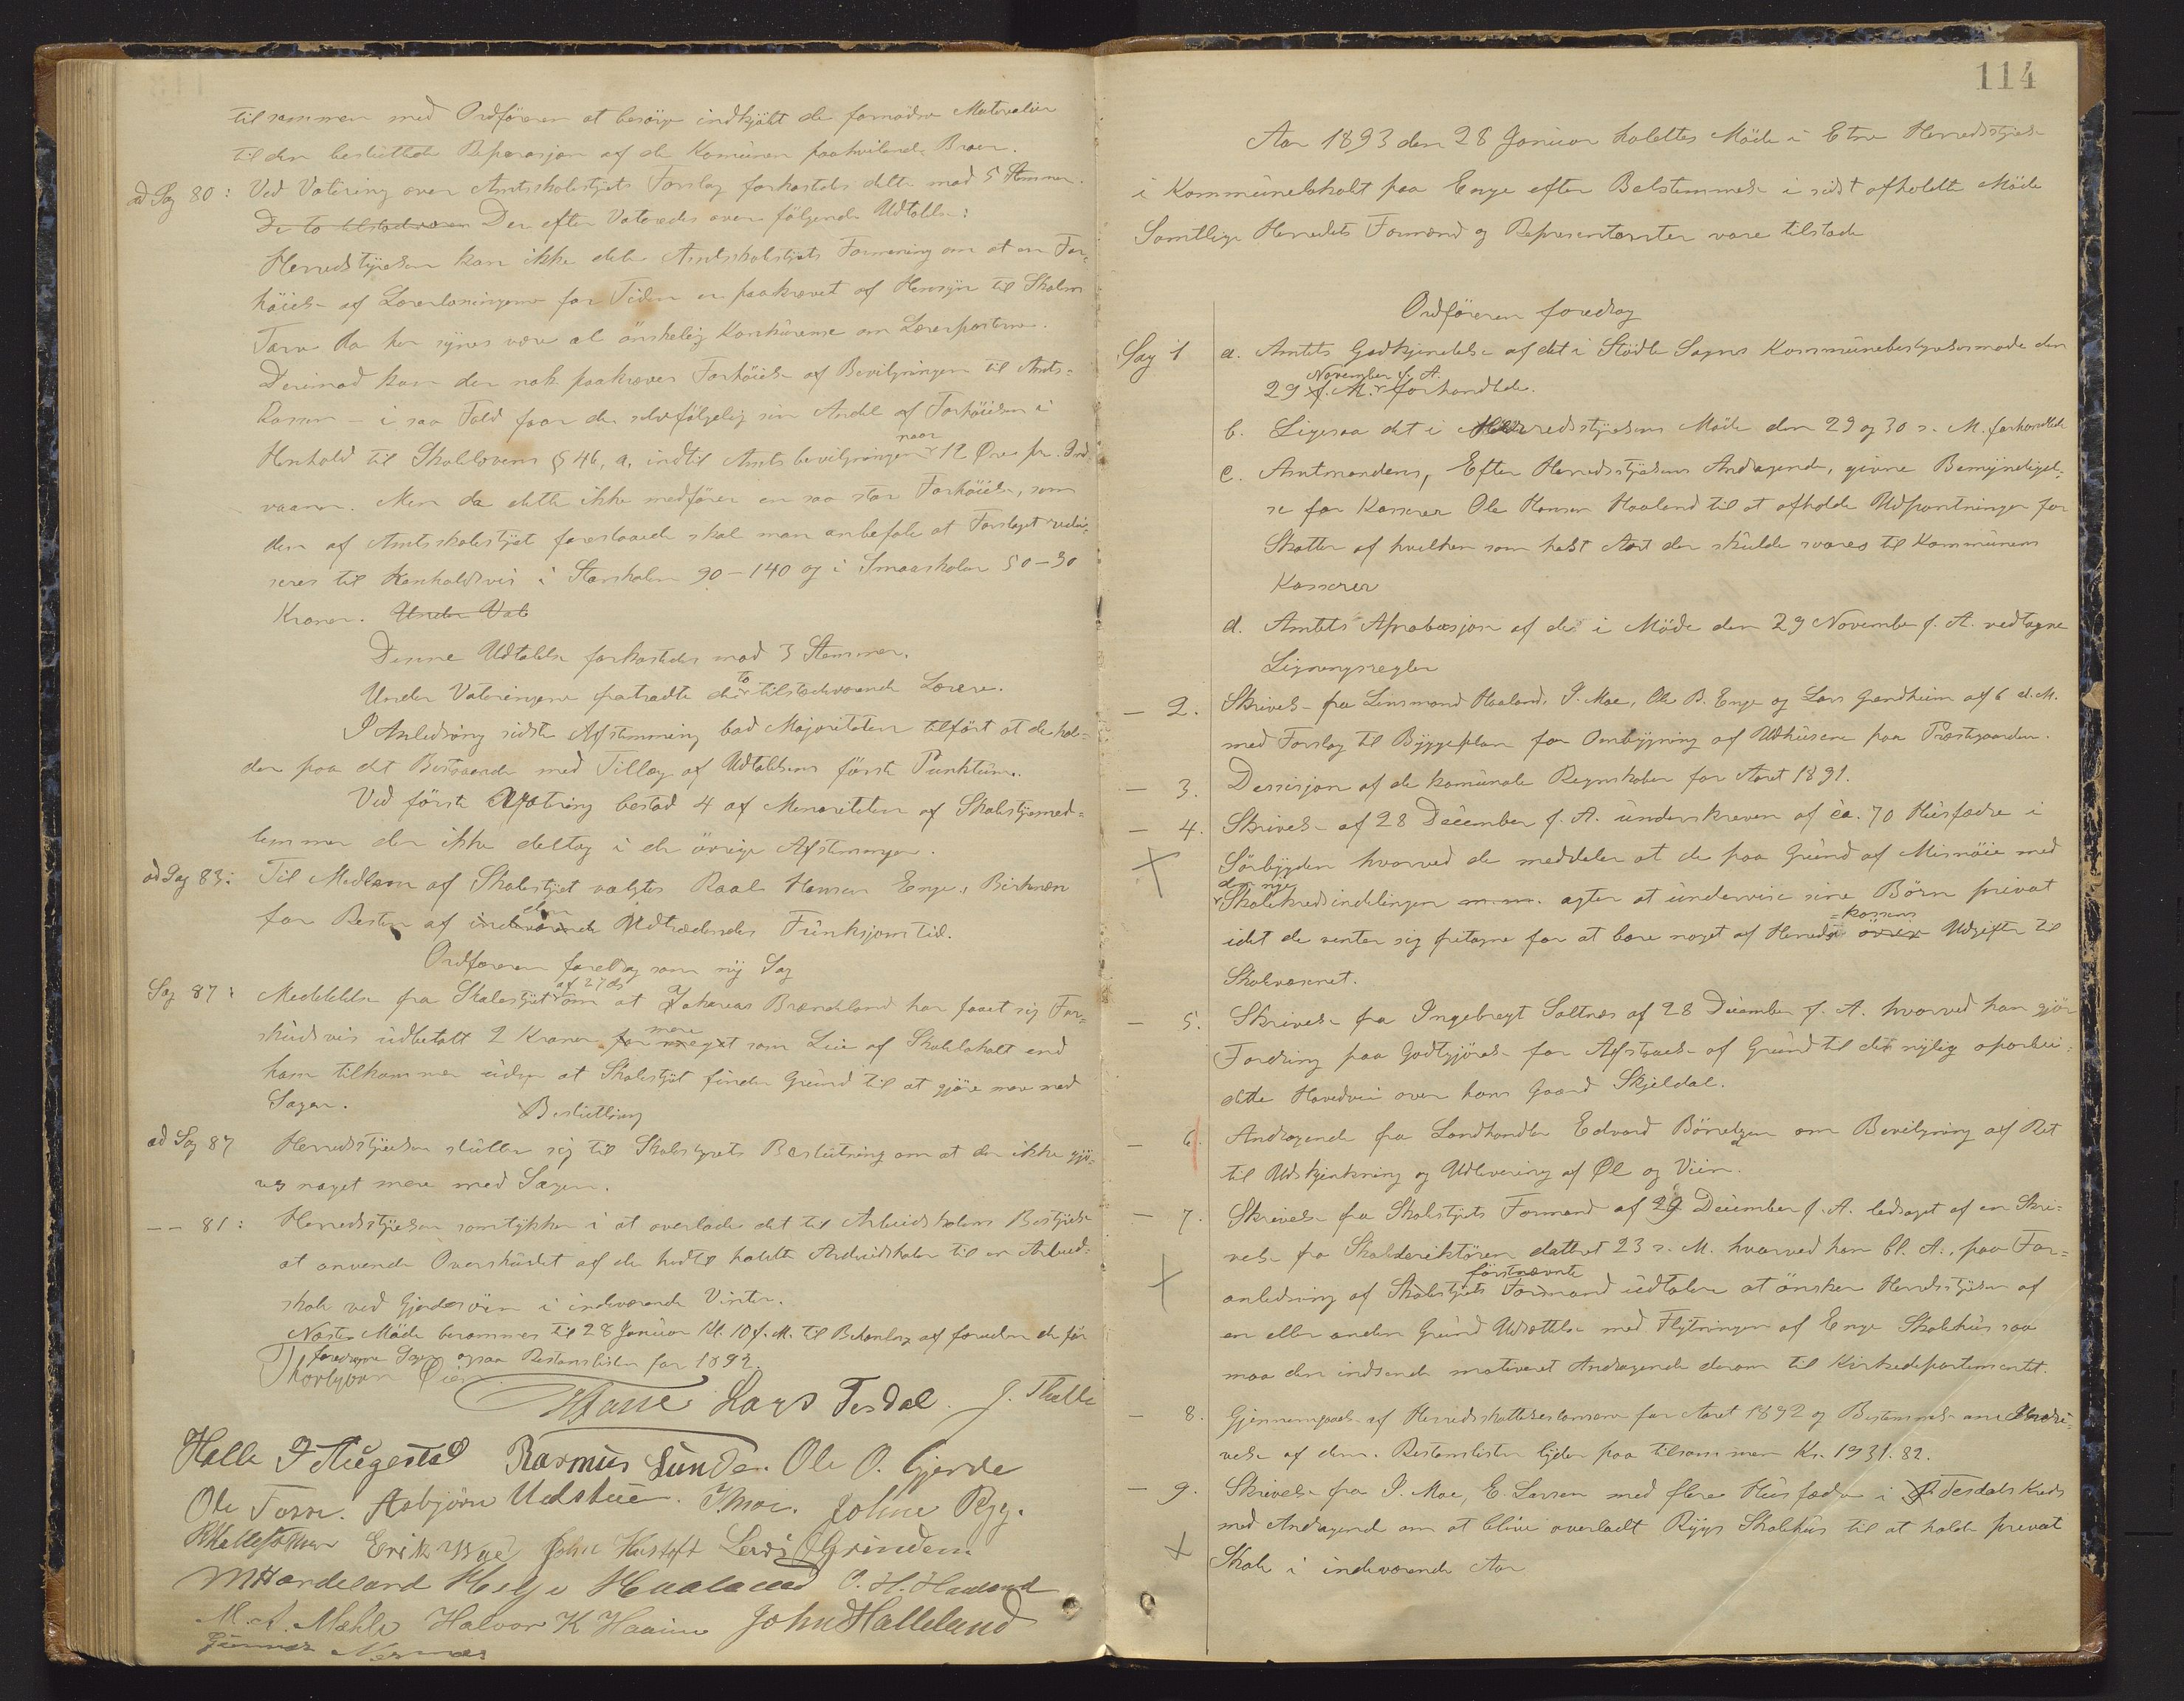 tilsammen med Ordföreren at besörge indkjöbt de fornödne Materialier
til den besluttede Reparasjon af de Komunen paahvilende Broer.
ad Sag 80: Ved Votering over Amtsskolestyrets Forslag forkastedes dette mod 5 Stemmer.
De to tilstedværen Der efter Voteredes over følgende Udtalelse:
Herredstyrelsen kan ikke dele Amtsskolestyrets Formening om at en For-
höielse af Lærerlönningerne for Tiden er paakrævet af Hensyn til Skolens
Tarv da her synes være al önskelig Konkurense om Lærerposterne.
Derimod kan der nok paakræves Forhöielse af Bevilgningen til Amts-
kassen - i saa Fald faar de selvfölgelig sin Andel af Forhöielsen i
Henhold til Skolelovens § 46, a, indtil Amtsbevilgningen naar 12 Öre pr. Ind-
vaaner. Men da dette ikke medförer en saa stor Forhöielse, som
den af Amtsskolestyret foreslaaede skal man anbefale at Forslaget redu-
seres til henholdsvis i Storskolen 90-140 og i Smaaskolen 50-90
Kroner. Under Vot
Denne Udtalelse forkastedes mod 3 Stemmer.
Under Voteringerne fratraadte de to tilstedeværende Lærere.
I Anledning sidste Afstemning bad Majoriteten tilfört at de hol-
der paa det Bestaaende med Tillæg af Udtalelsens förste Punktum.
Ved förste Votring bestod 4 af Minoriteten af Skolestyremed-
lemmer der ikke deltog i de övrige Afstemninger.
ad Sag 83: Til Medlem af Skolestyret valgtes Raal Hansen Enge, Birknæn
for Resten af indeværende den Udtrædendes Funksjonstid.
Ordföreren foredrog som ny Sag
Sag 87: Meddelelse fra Skolestyret af 27 ds om at Zakarias Brændeland har faaet sig For-
skudsvis udbetalt 2 Kroner for meget mere som Leie af Skolelokalt end
ham tilkommer uden at Skolestyret finder Grund til at gjöre mere med
Sagen.
Beslutning
ad Sag 87 Herredstyrelsen slutter sig til Skolestyrets Beslutning om at der ikke gjö-
res noget mere med Sagen.
-- 81: Herredstyrelsen samtykker i at overlade det til Arbeidsskolens Bestyrelse
at anvende Overskudet af de hidtil holdte Arbeidsskoler til en Arbeid-
skole ved Gjerdesöen i indeværende Vinter.
Næste Möde berammes til 28 Januar Kl. 10 f. M. til Behandling af foruden de för
foredragne Sager ogsaa Restanslisten for 1892.
Thorbjørn Øien
Lars Tesdal. J. Thelle
Halle I Augestad Rasmus Sunde. Ole O. Gjerde
Ole Tosse. Asbjörn Udstue. I Moe. Johne Ryg.
Erik Bye John Hustoft Lars O Grinden.
M Handeland Helje Haaland O. H. Haaland
M. A. Mæhle Halvor K Haaim John Halleland
Gunnar Nernæs
114
Aar 1893 den 28 Januar holdtes Möde i Etne Herredsstyrelse
i Kommunelokalt paa Enge efter Bestemmelse i sidst afholdte Möde
Samtlige Herredets Formænd og Representanter vare tilstede
Ordföreren foredrog
Sag 1 a. Amtets Godkjendelse af det i Stödle Sogns Kommunebestyrelsesmøde den
29 f. M. November f. A. forhandlede.
b. Ligesaa det i Herredsstyrelsens Möde den 29 og 30 s. M. forhandlede
c. Amtmandens, Efter Herredsstyrelsens Andragende, givne Bemyndigel-
se for Kasserer Ole Hansen Haaland til at afholde Udpantninger for
Skatter af hvilken som helst Art der skulde svares til Kommunens
Kasserer
d. Amtets Aprobasjon af de i Möde den 29 November f. A. vedtagne
Ligningsregler
- 2. Skrivelse fra Linsmand Haaland, I. Moe, Ole B. Enge og Lars Grindheim af 6 d. M.
med Forslag til Byggeplan for Ombygning af Udhusene paa Præstegaarden.
- 3. Dessisjon af de komunale Regnskaber for Aaret 1891.
- 4. Skrivelse af 28 December f. A. underskreven af ca. 70 Husfædre i
Sörbygden hvorved de meddeler at de paa Grund af Misnöie med
den nye Skolekredsindelingen m.m. agter at undervise sine Börn privat
idet de venter sig fritagne for at bære noget af Herreds-kassens Udgifter til
Skolevæsenet.
- 5. Skrivelse fra Ingebregt Saltnes af 28 December f. A. hvorved han gjör
Fordring paa Godtgjörelse for Afstaaelse af Grund til den nylig oparbei-
dette Hovedvei over hans Gaard Skjeldal.
- 6. Andragende fra Landhandler Edvard Börretzen om Bevilgning af Ret
til Udskjænkning og Udlevering af Øl og Viin.
- 7. Skrivelse fra Skolestyrets Formand af 29 December f. A. ledsaget af en Skri-
velse fra Skoledirektören dattert 23 s. M. hvorved han bl. A., paa For-
anledning af Skolestyrets förstnævnte Formand udtaler at önsker Herredsstyrelsen af
en eller anden Grund Udsættelse med Flytningen af Enge Skolehus saa
maa den indsende motiveret Andragende derom til Kirkedepartementet.
- 8. Gjennemgaaelse af Herredsskatterestanserne for Aaret 1892 og Bestemmelse om Inddri-
velse af dem. Restanslisten lyder paa tilsammen Kr. 1931.82.
- 9. Skrivelse fra I. Moe, E. Larsen med flere Husfædre i Tesdals Kreds
med Andragende om at blive overladt Rygs Skolehus til at holde prevat
Skole i indeværende Aar